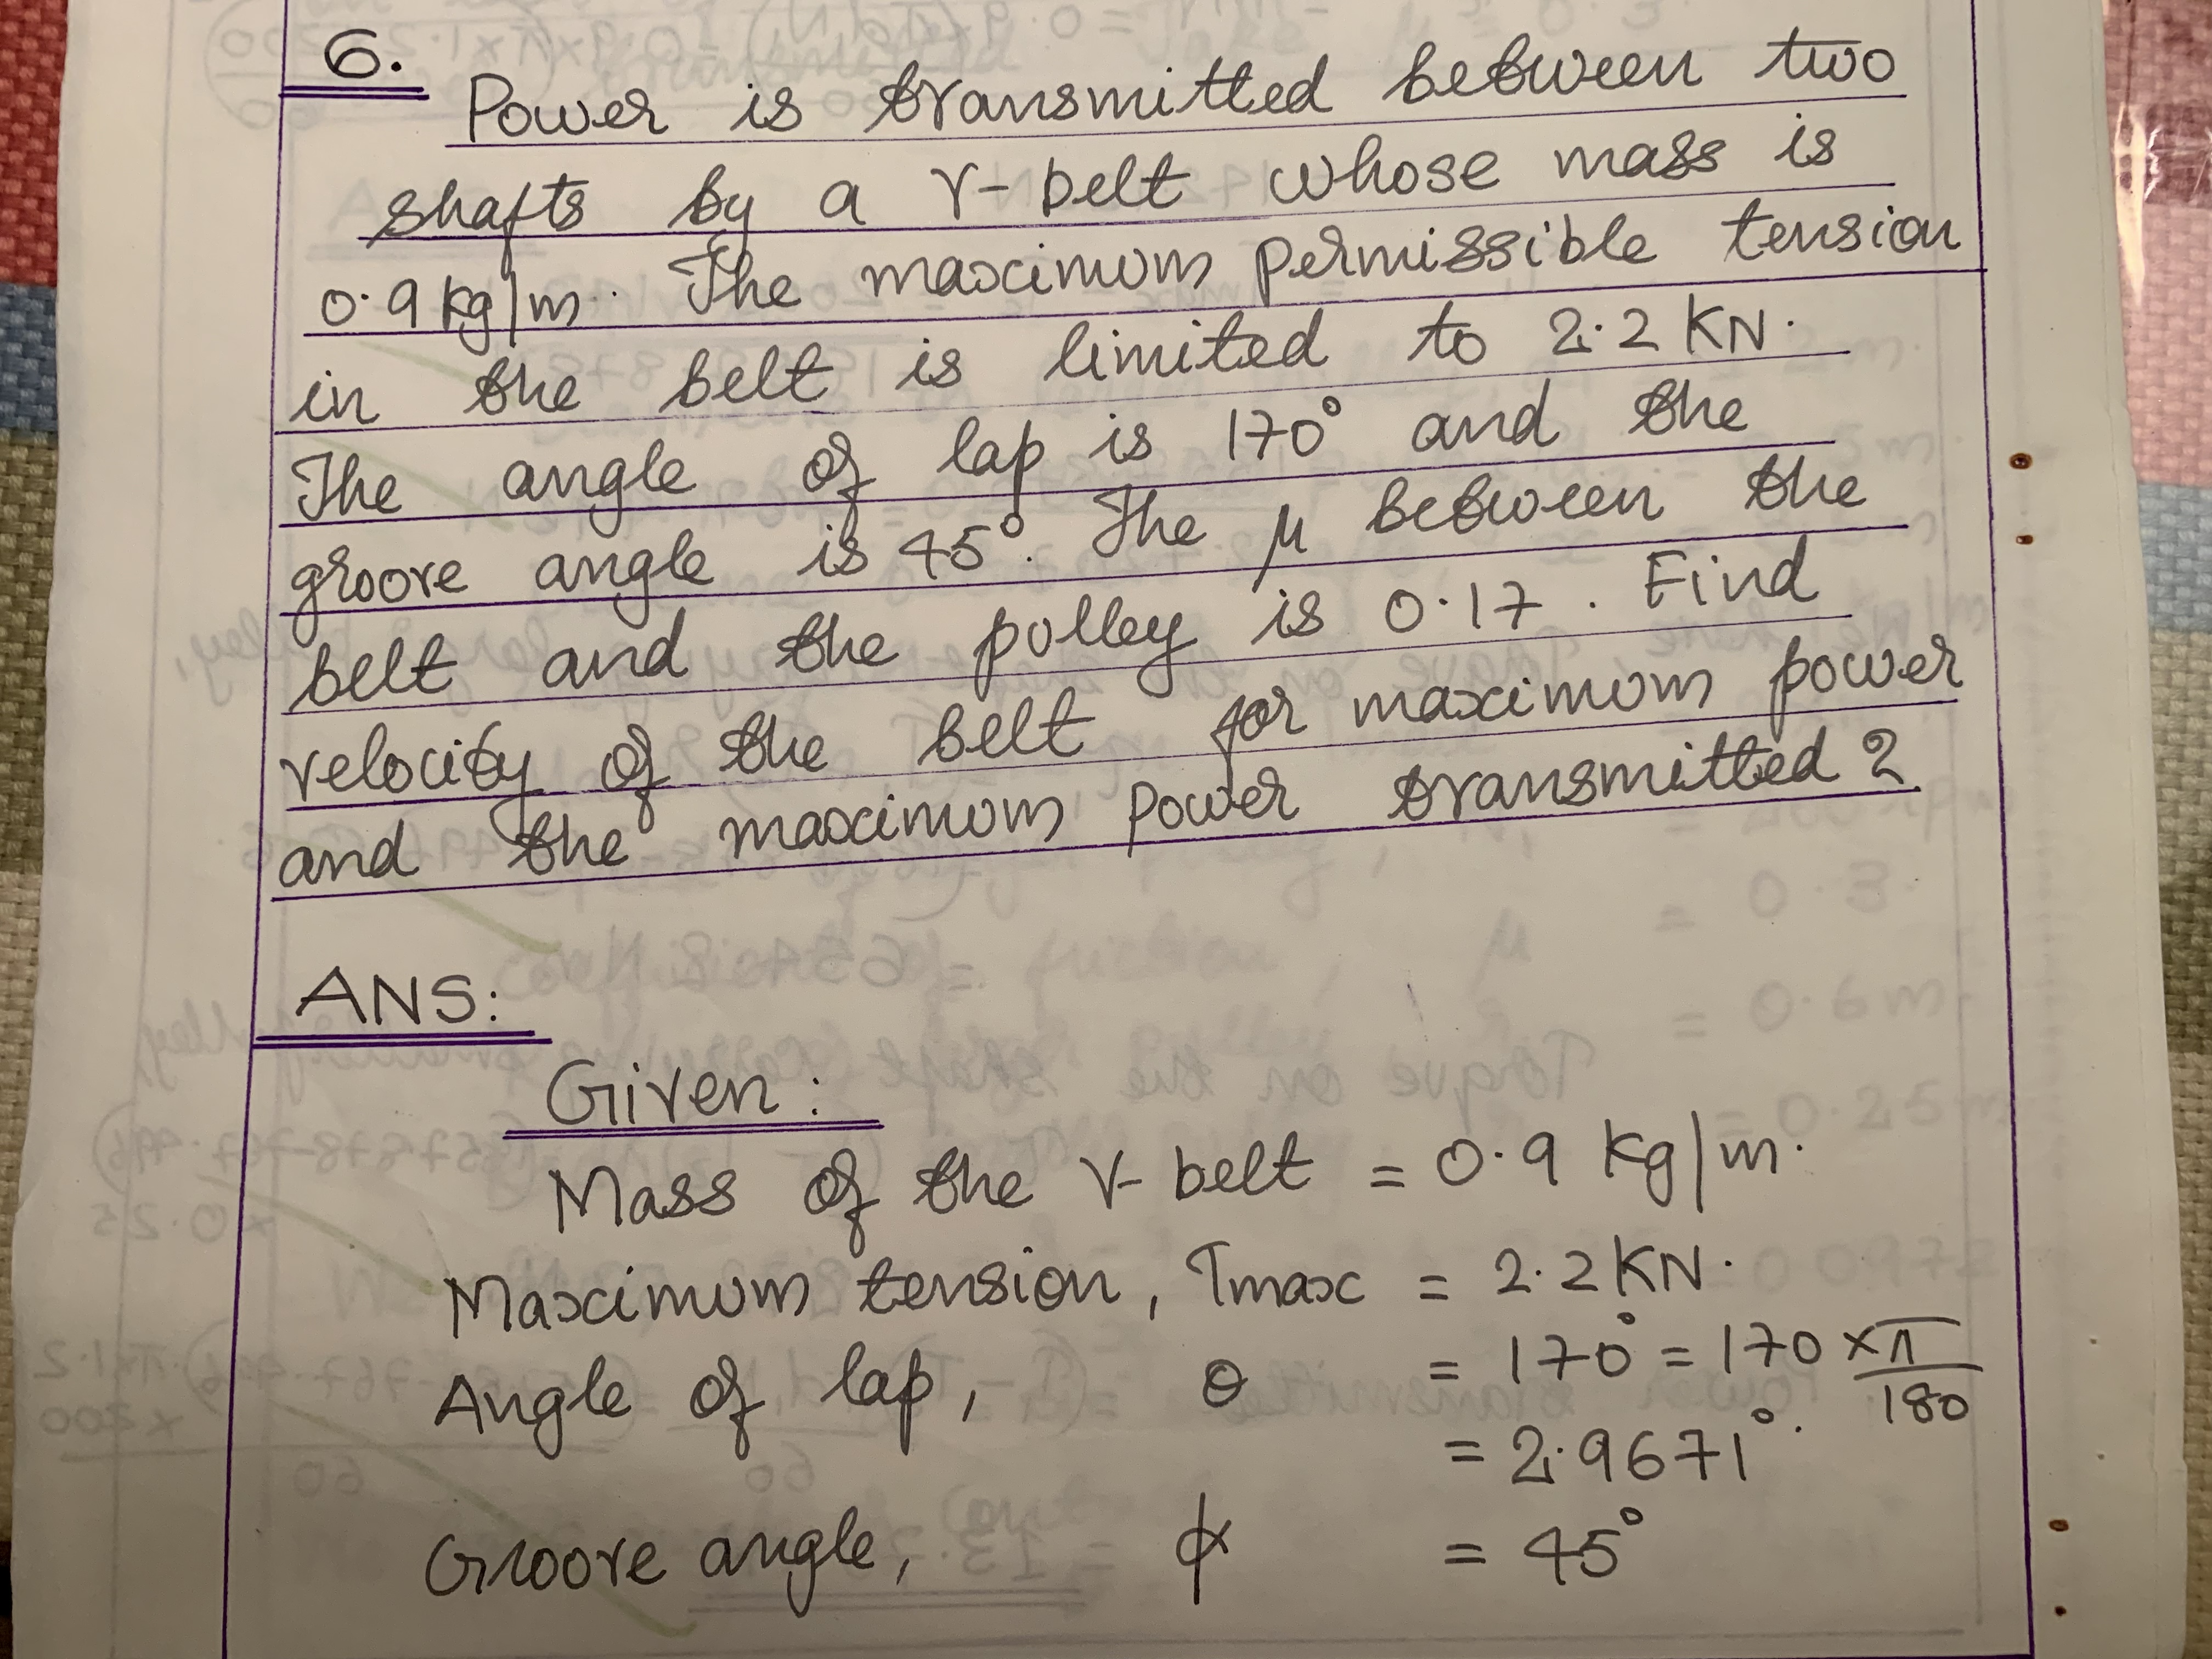 6. Power is transmitted between two
shafts by a V-belt whose mass is
0.9 kg/m. The maximum permissible tension
in the belt is limited to 2.2 KN.
The angle of lap is 170° and the
groove angle is 45°. The μ between the
belt and the pulley is 0.17. Find
velocity of the belt for maximum power
and the maximum power transmitted?
ANS:
Given:
Mass of the V-belt = 0.9 kg/m.
Maximum tension, Tmax = 2.2KN.
Angle of lap, θ = 170° = 170 × π/180
= 2.9671°.
Groove angle, α = 45°